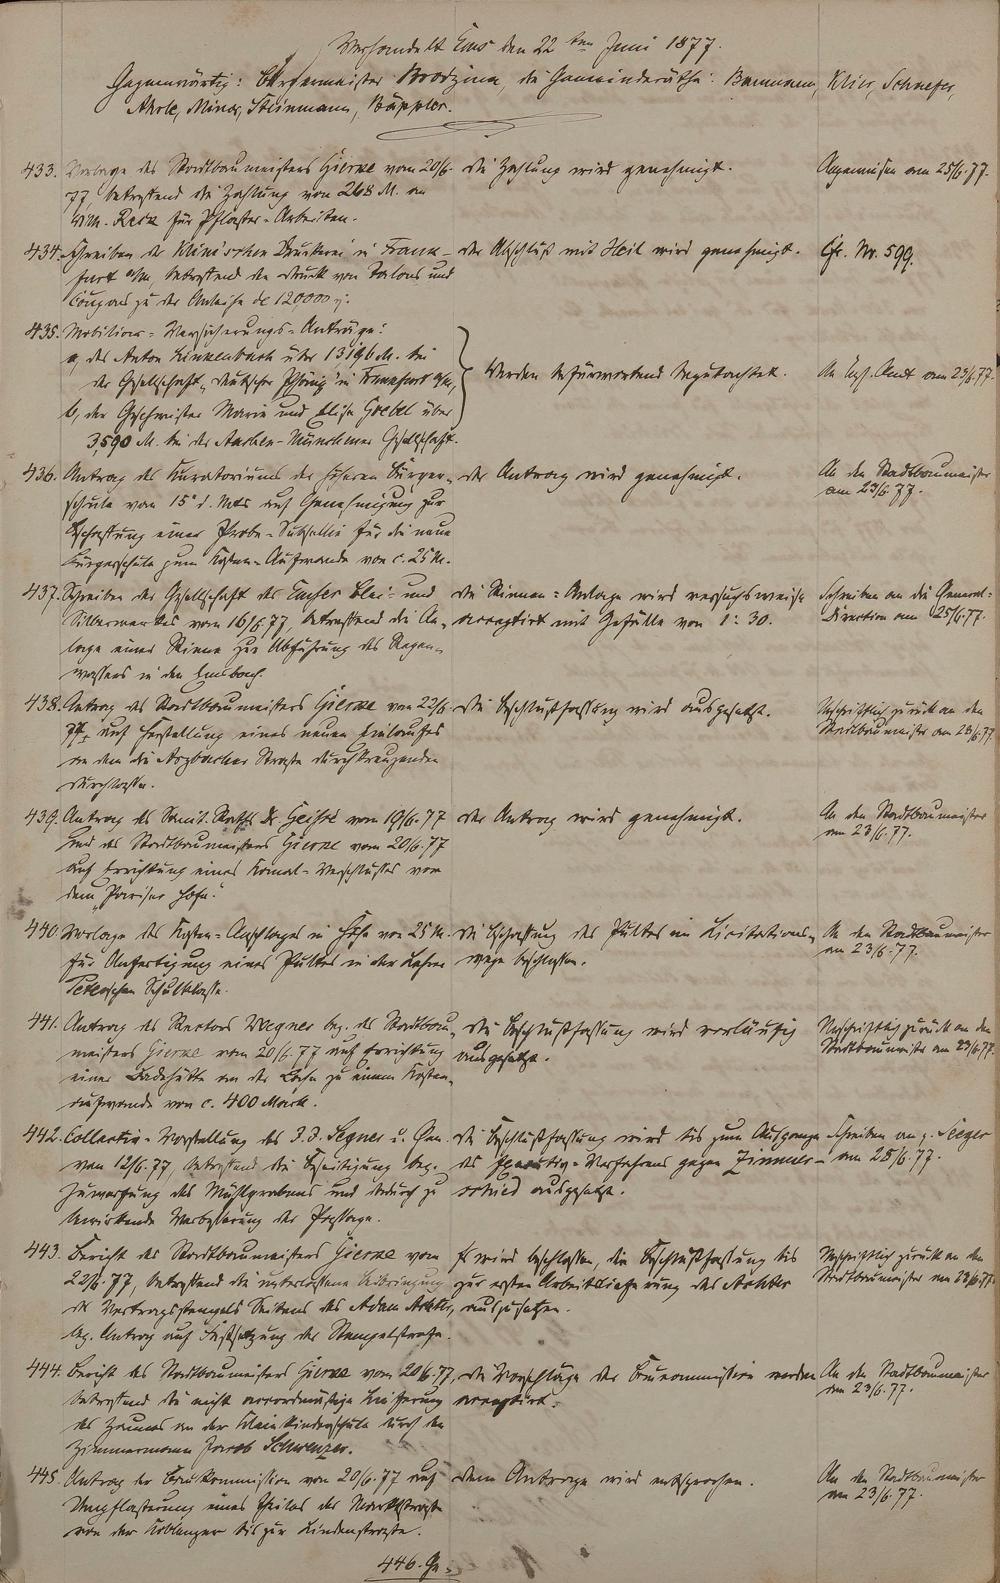 Verhandelt Ems den 22ten Juni 1877.
Gegenwärtig: Bürgermeister Brodzina, die Gemeinderäthe: Baumann, Klier, Schaefer,
Ahrle, Minor, Steinmann, Käppler.
433. Vorlage des Stadtbaumeisters Gierke vom 20/6.
77, betreffend die Zahlung von 268 M. an
Wilh. Reck für Pflaster-Arbeiten.
Die Zahlung wird genehmigt.
Angewiesen am 25/6.77.
434. Schreiben der Klimschen Druckerei in Frank-
furt a/M, betreffend den Druck von Talons und
Coupons zu der Anleihe de 120,000
Der Abschluß mit Heil wird genehmigt.
Cfr. Nr. 599.
435. Mobiliar-Versicherungs-Anträge:
a, des Anton Linkenbach über 13196 M. bei
der Gesellschaft "Deutscher Phönix" in Frankfurt a/M,
b, der Geschwister Marie und Elise Goebel über
3,590 M. bei der Aachen-Münchener Gesellschaft.
Werden befürwortend begutachtet.
An Kgl. Amt am 23/6.77.
436. Antrag des Kuratoriums der höheren Bürger-
schule vom 15t d. Mts auf Genehmigung zur
Beschaffung einer Probe-Subsellie für die neue
Bürgerschule zum Kosten-Aufwande von c. 25 M.
Der Antrag wird genehmigt.
An den Stadtbaumeister
am 23/6.77.
437. Schreiben der Gesellschaft des Emser Blei- und
Silberwerkes vom 16/6.77, betreffend die An-
lage einer Rinne zur Abführung des Regen-
wassers in den Emsbach.
Die Rinnen-Anlage wird versuchsweise
acceptirt mit Gefälle von 1:30.
Schreiben an die General-
Direction am 25/6.77.
438. Antrag des Stadtbaumeisters Gierke vom 22/6.
77, auf Herstellung eines neuen Einlaufes
an dem die Arzbacher Straße durchkreuzenden
Durchlasse.
Die Beschlußfassung wird ausgesetzt.
Urschriftlich zurück an den
Stadtbaumeister am 23/6.77.
439. Antrag des Sanit. Raths Dr. Geisse vom 19/6.77
und des Stadtbaumeisters Gierke vom 20/6.77
auf Errichtung eines Kanal-Verschlusses vor
dem "Pariser Hofe."
Der Antrag wird genehmigt.
An den Stadtbaumeister
am 23/6.77.
440. Vorlage des Kosten-Anschlages in Höhe von 25 M.
für Anfertigung eines Pultes in der Lehrer
Peters'schen Schulklasse.
Die Beschaffung des Pultes im Licitations-
wege beschlossen.
An den Stadtbaumeister
am 23/6.77.
441. Antrag des Rectors Wegner bez. des Stadtbau-
meisters Gierke vom 20/6.77 auf Errichtung
einer Badehütte an der Lahn zu einem Kosten-
aufwande von c. 400 Mark.
Die Beschlußfassung wird vorläufig
ausgesetzt.
Urschriftlich zurück an den
Stadtbaumeister am 23/6.77.
442. Collectiv-Vorstellung des J. J. Segner u. Gen.
vom 12/6.77, betreffend die Beseitigung bez.
Zuwerfung des Mühlgrabens und dadurch zu
bewirkende Verbesserung der Passage.
Die Beschlußfassung wird bis zum Ausgange
des Executiv-Verfahrens gegen Zimmer-
schied ausgesetzt.
Schreiben an
am 28/6.77.
443. Bericht des Stadtbaumeisters Gierke vom
22/6.77, betreffend die unterlassene Beibringung
des Vertragsstempels Seitens des Adam
bez. Antrag auf Festsetzung der Stempelstrafe.
Es wird beschlossen, die Beschlußfassung bis
zur ersten Arbeitslieferung des
auszusetzen.
Urschriftlich zurück an den
Stadtbaumeister am 23/6.77.
444. Bericht des Stadtbaumeisters Gierke vom 20/6.77,
betreffend die nicht accordmäßige Lieferung
des Zaunes an der Kleinkinderschule durch den
Zimmermann Jacob Schwenzer.
Die Vorschläge der Baucommission werden
acceptirt.
An den Stadtbaumeister
am 23/6.77.
445. Antrag der Baukommission vom 20/6.77 auf
Umpflasterung eines Theiles der Marktstraße
von der Koblenzer bis zur Lindenstraße.
Dem Antrage wird entsprochen.
An den Stadtbaumeister
am 23/6.77.
446. Ge-